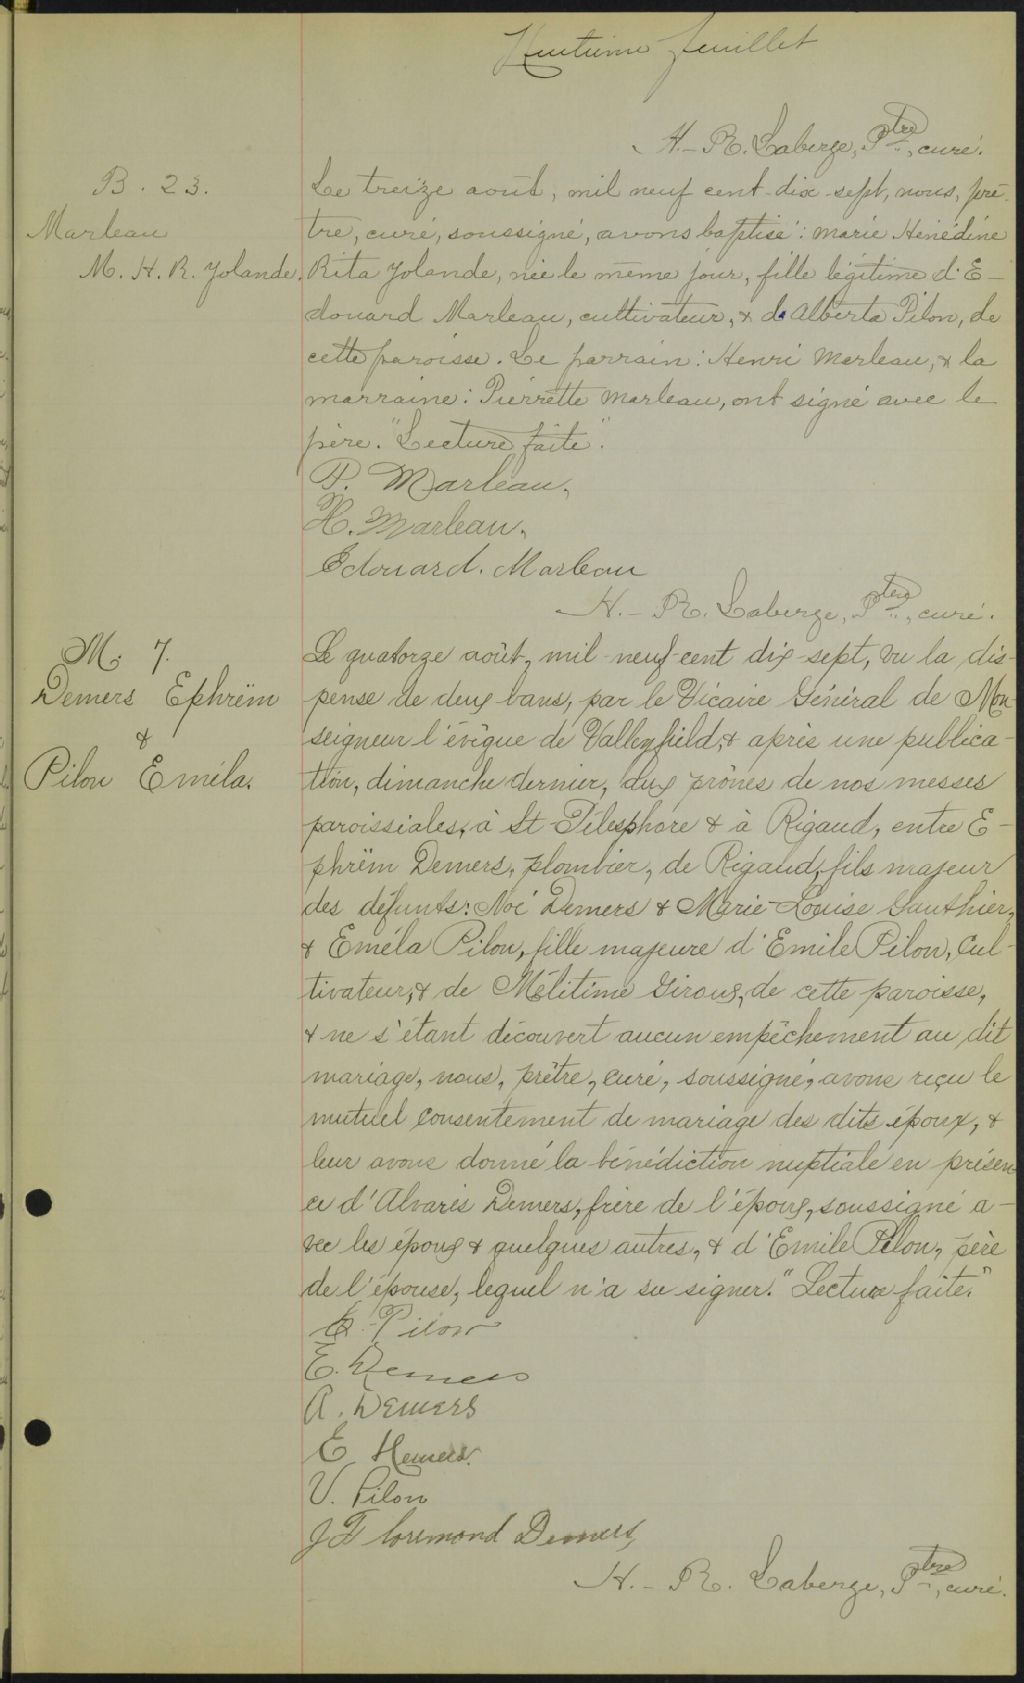 Huitième feuillet
H.-R. Laberge, Ptre, curé.
B. 23.
Marleau
M. H. R. Yolande.
Le treize août, mil neuf cent dix-sept, nous, prê-
tre, curé, soussigné, avons baptisé: Marie Hénédine
Rita Yolande, née le même jour, fille légitime d'E-
douard Marleau, cultivateur, & de Alberta Pilon, de
cette paroisse. Le parrain: Henri Marleau, & la
marraine: Pierrette Marleau, ont signé avec le
père. "Lecture faite".
P. Marleau.
H. Marleau.
Edouard. Marleau
H.-R. Laberge, Ptre, curé.
M. 7.
Demers Ephrëm
&
Pilon Eméla.
Le quatorze août, mil-neuf-cent dix-sept, vu la dis-
pense de deux bans, par le Vicaire Général de Mon-
seigneur l'évêque de Valleyfield, & après une publica-
tion, dimanche dernier, aux prônes de nos messes
paroissiales, à St-Télesphore & à Rigaud, entre E-
phrëm Demers, plombier, de Rigaud, fils majeur
des défunts: Noé Demers & Marie-Louise Gauthier,
& Eméla Pilon, fille majeure d'Emile Pilon, cul-
tivateur, & de Mélitime Giroux, de cette paroisse,
& ne s'étant découvert aucun empêchement au dit
mariage, nous, prêtre, curé, soussigné, avons reçu le
mutuel consentement de mariage des dits époux, &
leur avons donné la bénédiction nuptiale en présen-
ce d'Alvarès Demers, frère de l'époux, soussigné a-
vec les époux & quelques autres, & d'Emile Pilon, père
de l'épouse, lequel n'a su signer. "Lecture faite."
E. Pilon
E. Demers
A. Demers
E Demers.
V. Pilon
J F lorimond Demers
H.-R. Laberge, Ptre, curé.